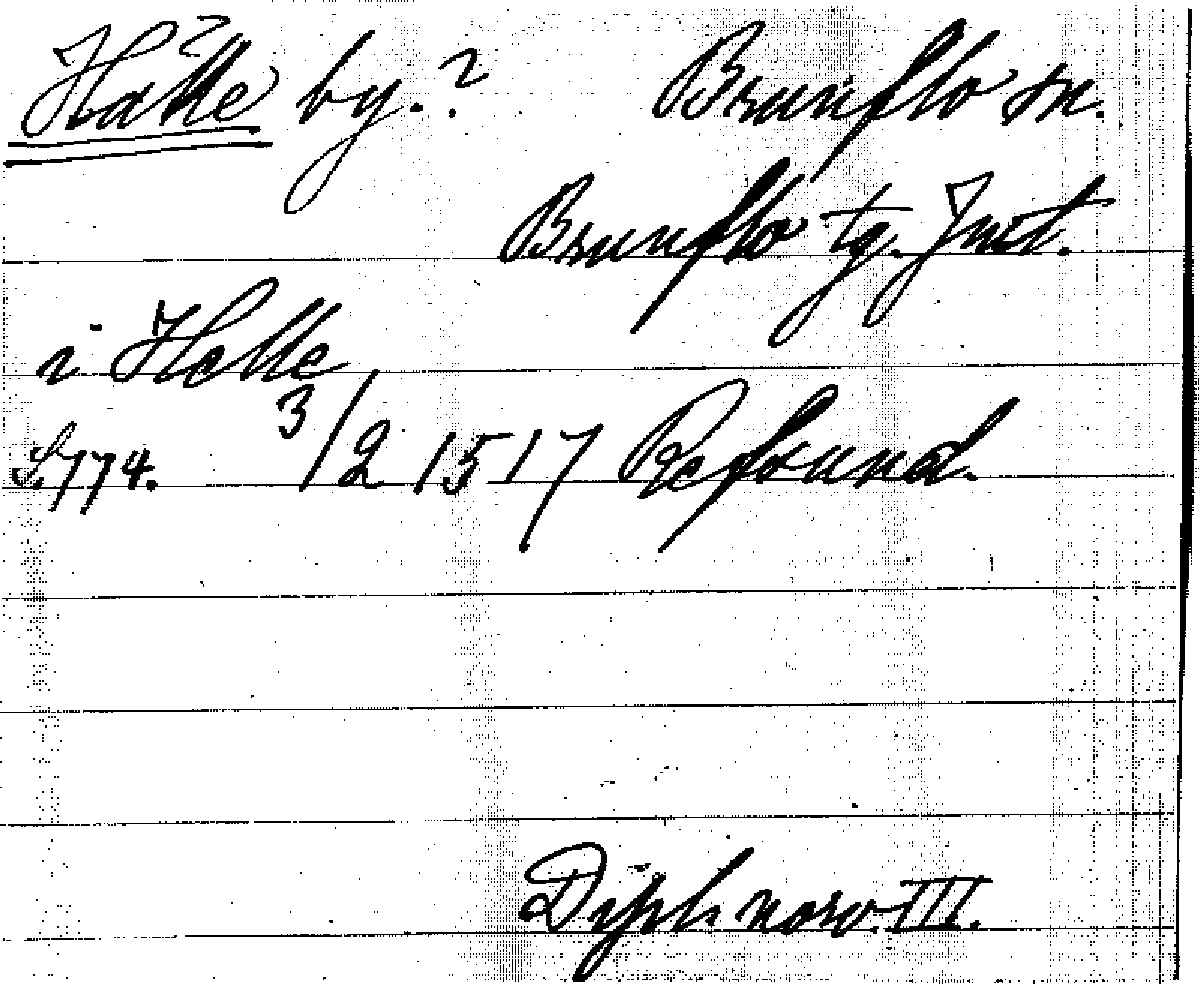 Hälle by.? Brunflo sn.
Brunflo tg. Jmt.
i Helle
S. 774. 3/2 1517 Refsund.
Dipl. norv. III.